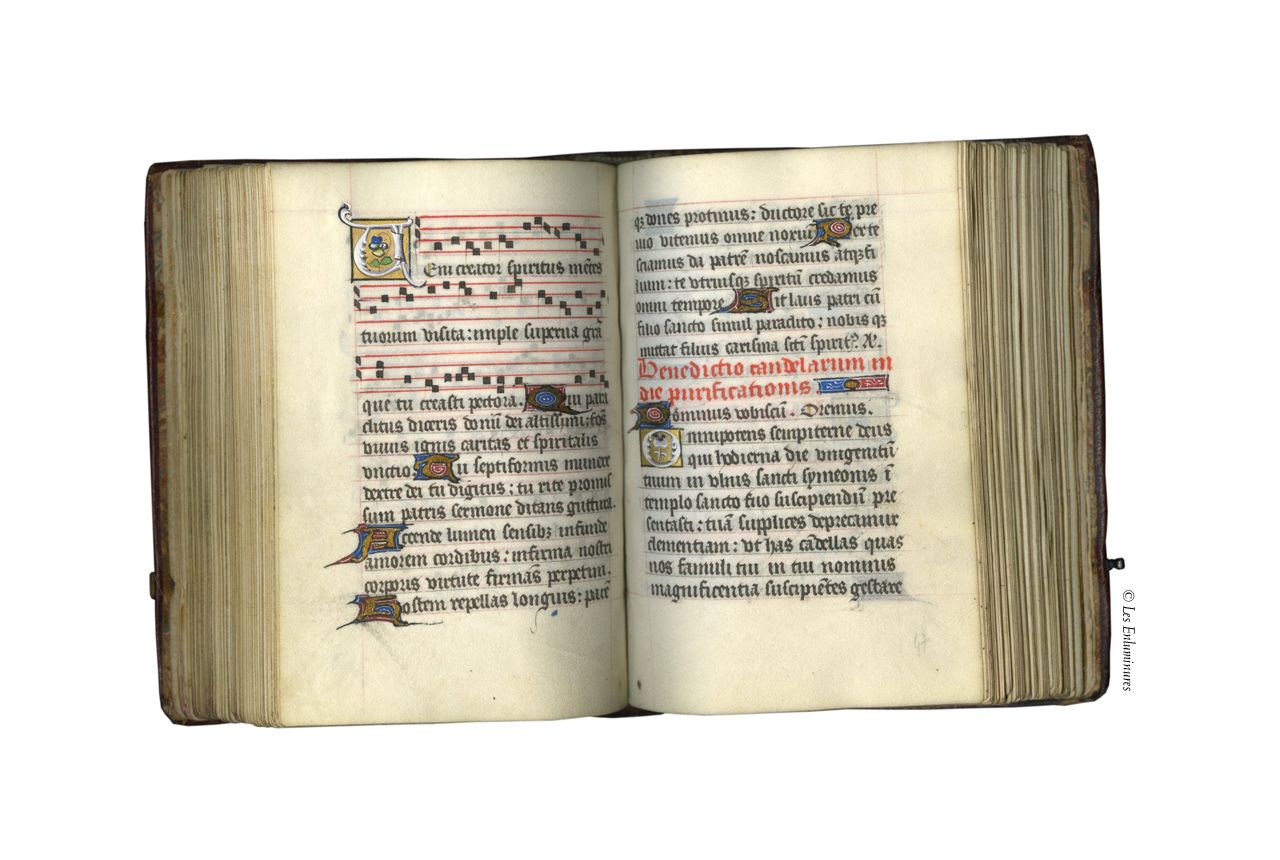 Veni creator spiritus mẽtes
tuorum visita: imple superna gr̃a
que tu creasti pectora. Qui para
clitus diceris donũ dei altissimi: fos
vivus ignis caritas et spiritalis
vnctio. Tu septiformis munere
dextre dei tu digitus: tu rite promis
sum patris sermone ditans guttura.
Accende lumen sensibꝫ infunde
amorem cordibus: infirma nostri
corporis virtute firmãs perpetim.
Hostem repellas longius: pacẽ
qꝫ dones protinus: ductore sic te pre
uio vitemus omne noxiũ. Per te
sciamus da patrẽ noscamus atqꝫ fi
lium: te vtriusqꝫ spiritũ credamus
omni tempore. Sit laus patri cũ
filio sancto simul paraclito: nobis qꝫ
mittat filius carisma sctĩ spirit⁹.
Benedictio candelarum in
die purificationis
Dominus vobiscũ. Oremus.
Omnipotens sempiterne deus
qui hodierna die vnigenitũ
tuum in vlnis sancti symeonis ĩ
templo sancto tuo suscipiendũ pre
sentasti: tuã supplices deprecamur
clementiam: vt has cãdellas quas
nos famuli tui in tui nominis
magnificentia suscipiẽtes gestare
47
© Les Enluminures